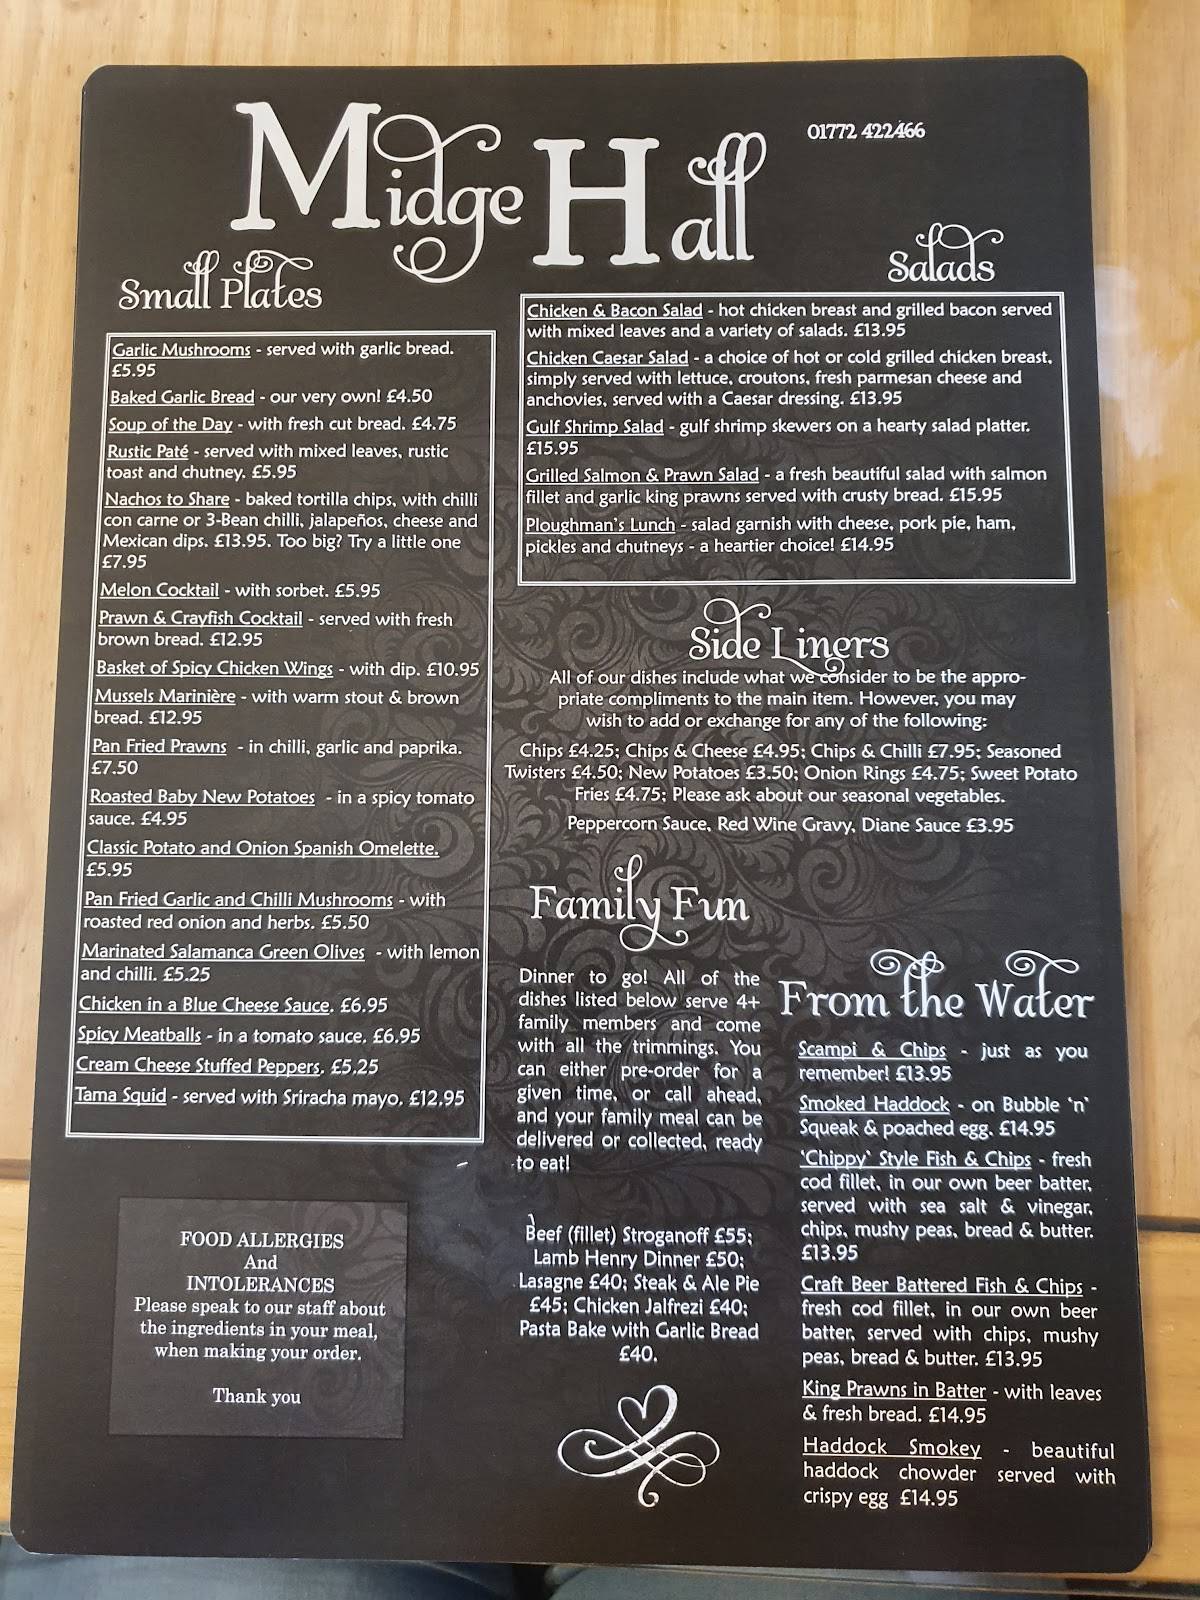 Midge Hall
01772 422466
Small Plates
Garlic Mushrooms - served with garlic bread.
£5.95
Baked Garlic Bread - our very own! £4.50
Soup of the Day - with fresh cut bread. £4.75
Rustic Paté - served with mixed leaves, rustic
toast and chutney. £5.95
Nachos to Share - baked tortilla chips, with chilli
con carne or 3-Bean chilli, jalapeños, cheese and
Mexican dips. £13.95. Too big? Try a little one
£7.95
Melon Cocktail - with sorbet. £5.95
Prawn & Crayfish Cocktail - served with fresh
brown bread. £12.95
Basket of Spicy Chicken Wings - with dip. £10.95
Mussels Marinière - with warm stout & brown
bread. £12.95
Pan Fried Prawns - in chilli, garlic and paprika.
£7.50
Roasted Baby New Potatoes - in a spicy tomato
sauce. £4.95
Classic Potato and Onion Spanish Omelette.
£5.95
Pan Fried Garlic and Chilli Mushrooms - with
roasted red onion and herbs. £5.50
Marinated Salamanca Green Olives - with lemon
and chilli. £5.25
Chicken in a Blue Cheese Sauce. £6.95
Spicy Meatballs - in a tomato sauce. £6.95
Cream Cheese Stuffed Peppers. £5.25
Tama Squid - served with Sriracha mayo. £12.95
FOOD ALLERGIES
And
INTOLERANCES
Please speak to our staff about
the ingredients in your meal,
when making your order.
Thank you
Salads
Chicken & Bacon Salad - hot chicken breast and grilled bacon served
with mixed leaves and a variety of salads. £13.95
Chicken Caesar Salad - a choice of hot or cold grilled chicken breast,
simply served with lettuce, croutons, fresh parmesan cheese and
anchovies, served with a Caesar dressing. £13.95
Gulf Shrimp Salad - gulf shrimp skewers on a hearty salad platter.
£15.95
Grilled Salmon & Prawn Salad - a fresh beautiful salad with salmon
fillet and garlic king prawns served with crusty bread. £15.95
Ploughman's Lunch - salad garnish with cheese, pork pie, ham,
pickles and chutneys - a heartier choice! £14.95
Side Liners
All of our dishes include what we consider to be the appro-
priate compliments to the main item. However, you may
wish to add or exchange for any of the following:
Chips £4.25; Chips & Cheese £4.95; Chips & Chilli £7.95; Seasoned
Twisters £4.50; New Potatoes £3.50; Onion Rings £4.75; Sweet Potato
Fries £4.75; Please ask about our seasonal vegetables.
Peppercorn Sauce, Red Wine Gravy, Diane Sauce £3.95
Family Fun
Dinner to go! All of the
dishes listed below serve 4+
family members and come
with all the trimmings. You
can either pre-order for a
given time, or call ahead,
and your family meal can be
delivered or collected, ready
to eat!
Beef (fillet) Stroganoff £55;
Lamb Henry Dinner £50;
Lasagne £40; Steak & Ale Pie
£45; Chicken Jalfrezi £40;
Pasta Bake with Garlic Bread
£40.
From the Water
Scampi & Chips - just as you
remember! £13.95
Smoked Haddock - on Bubble 'n'
Squeak & poached egg. £14.95
'Chippy' Style Fish & Chips - fresh
cod fillet, in our own beer batter,
served with sea salt & vinegar,
chips, mushy peas, bread & butter.
£13.95
Craft Beer Battered Fish & Chips -
fresh cod fillet, in our own beer
batter, served with chips, mushy
peas, bread & butter. £13.95
King Prawns in Batter - with leaves
& fresh bread. £14.95
Haddock Smokey - beautiful
haddock chowder served with
crispy egg £14.95